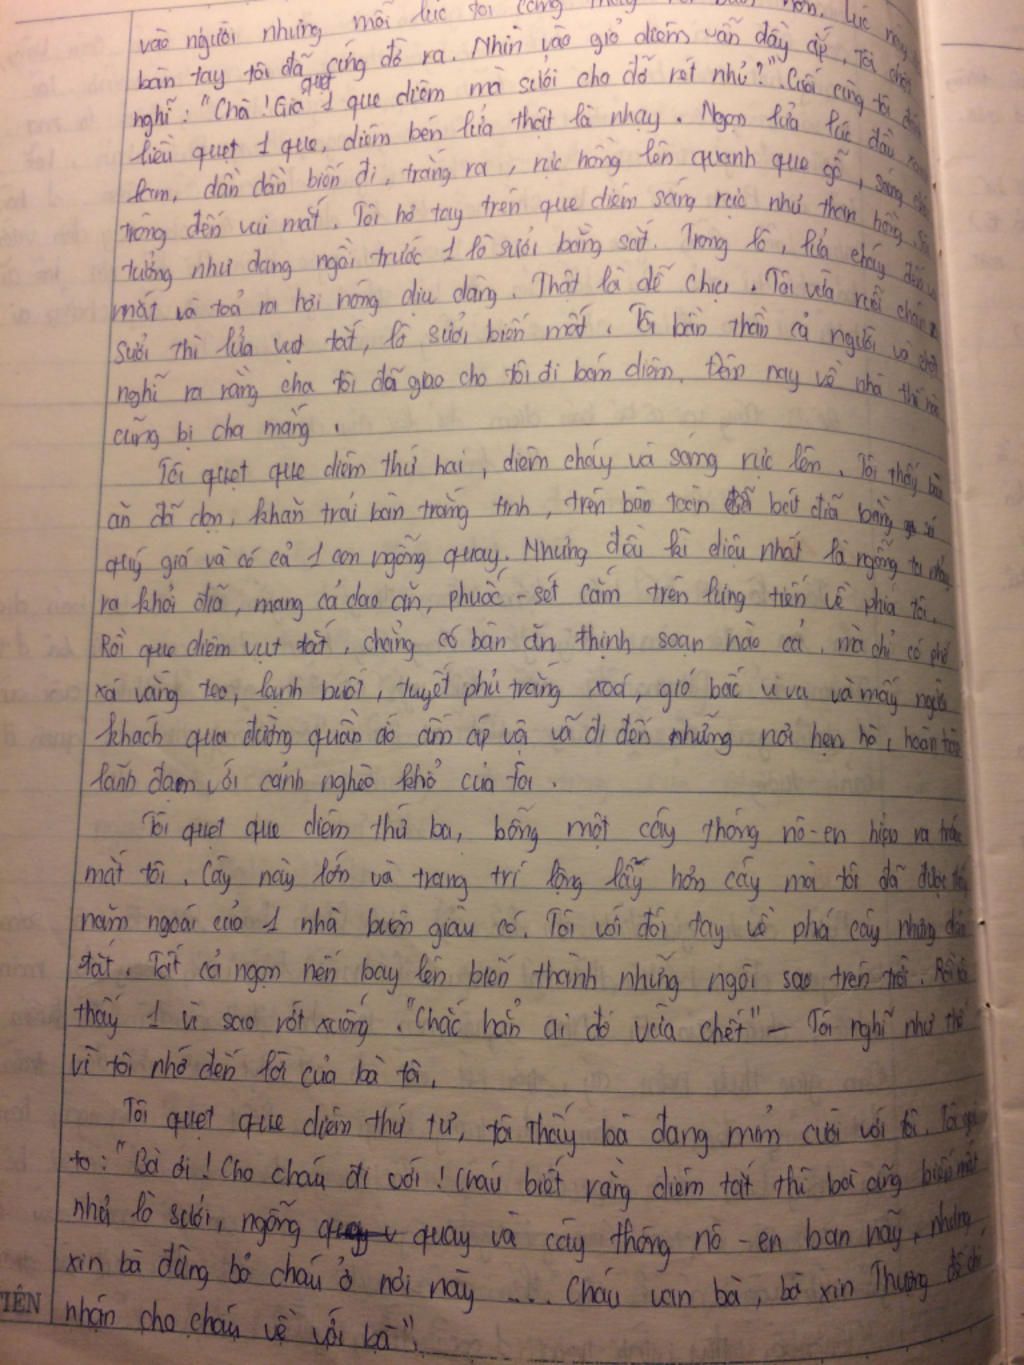 vào người nhưng mỗi lúc tôi càng thấy
bàn tay tôi đã cứng đờ ra. Nhìn vào giỏ diêm vẫn đầy ắp, Tôi chợt
nghĩ: "Chà! Giá quẹt 1 que diêm mà sưởi cho đỡ rét nhỉ?". Cuối cùng tôi đánh
liều quẹt 1 que, diêm bén lửa thật là nhạy. Ngọn lửa lúc đầu xanh
lam, dần dần biến đi, trắng ra, rực hồng lên quanh que gỗ, sáng chói
trông đến vui mắt. Tôi hơ tay trên que diêm sáng rực như than hồng.
tưởng như đang ngồi trước 1 lò sưởi bằng sắt. Trong lò, lửa cháy đến vui
mắt và toả ra hơi nóng dịu dàng. Thật là dễ chịu. Tôi vừa ruỗi chân
sưởi thì lửa vụt tắt, lò sưởi biến mất. Tôi bần thần cả người và chợt
nghĩ ra rằng cha tôi đã giao cho tôi đi bán diêm. Đêm nay về nhà thế nào
cũng bị cha mắng.
Tôi quẹt que diêm thứ hai, diêm cháy và sáng rực lên. Tôi thấy bàn
ăn đã dọn, khăn trải bàn trắng tinh, trên bàn toàn bát đĩa bằng sứ
quý giá và có cả 1 con ngỗng quay. Nhưng điều kì diệu nhất là ngỗng ta nhảy
ra khỏi đĩa, mang cả dao ăn, phuốc-sét cắm trên lưng tiến về phía tôi.
Rồi que diêm vụt tắt, chẳng có bàn ăn thịnh soạn nào cả, mà chỉ có phố
xá vắng teo, lạnh buốt, tuyết phủ trắng xoá, gió bấc vi vu và mấy người
khách qua đường quần áo ấm áp vội vã đi đến những nơi hẹn hò, hoàn toàn
lãnh đạm với cảnh nghèo khổ của tôi.
Tôi quẹt que diêm thứ ba, bỗng một cây thông nô-en hiện ra trước
mắt tôi. Cây này lớn và trang trí lộng lẫy hơn cây mà tôi đã được thấy
năm ngoái của 1 nhà buôn giàu có. Tôi với đôi tay về phía cây nhưng diêm
tắt. Tất cả ngọn nến bay lên biến thành những ngôi sao trên trời. Rồi tôi
thấy 1 vì sao rớt xuống. "Chắc hẳn ai đó vừa chết" – Tôi nghĩ như thế
vì tôi nhớ đến lời của bà tôi.
Tôi quẹt que diêm thứ tư, tôi thấy bà đang mỉm cười với tôi. Tôi gọi
to: "Bà ơi! Cho cháu đi với! Cháu biết rằng diêm tắt thì bà cũng biến mất
như lò sưởi, ngỗng quay và cây thông nô-en ban nãy, nhưng
xin bà đừng bỏ cháu ở nơi này.... Cháu van bà, bà xin Thượng đế chí
nhân cho cháu về với bà".
TIÊN